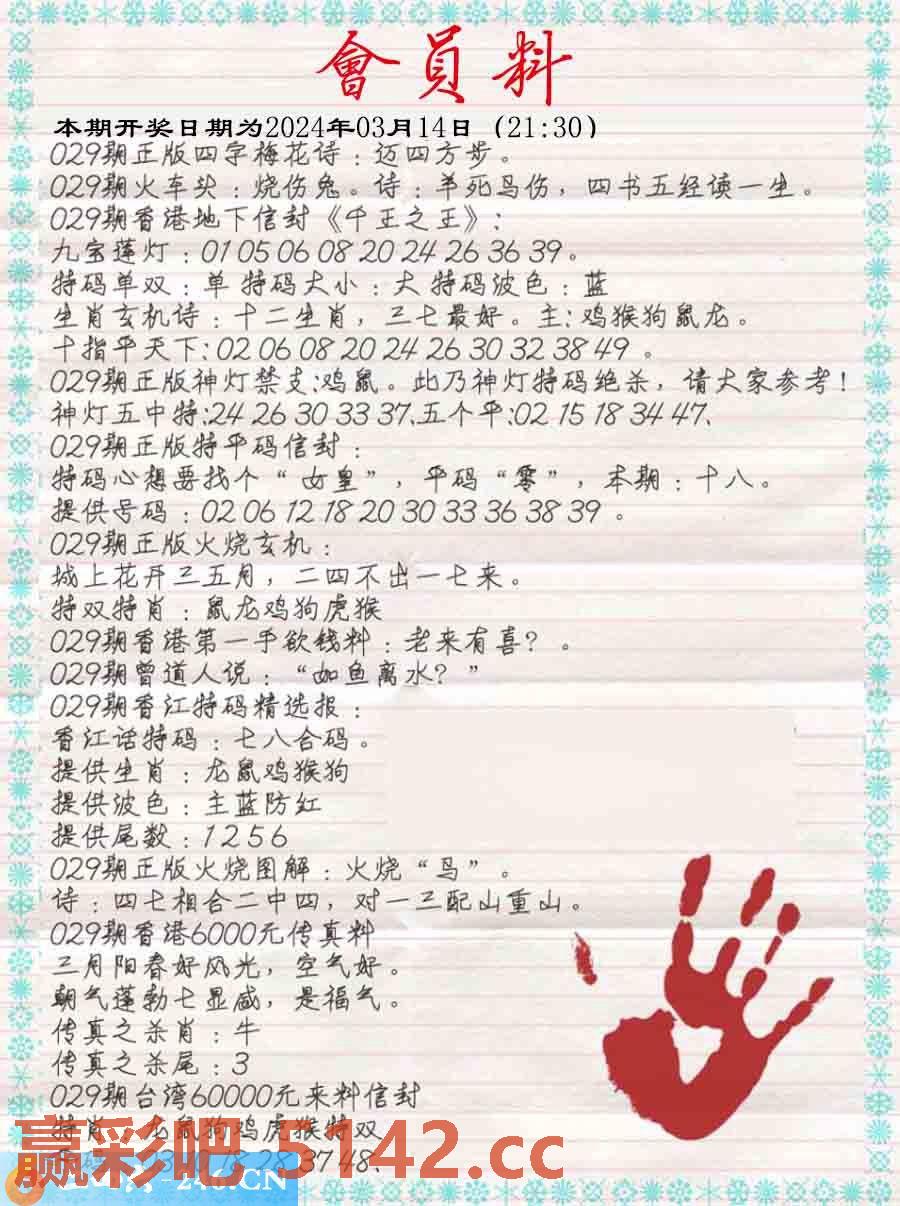 會員料
本期开奖日期为2024年03月14日（21:30）
029期正版四字梅花诗：迈四方步。
029期火车头：烧伤兔。诗：羊死鸟伤，四书五经读一生。
029期香港地下信封《千王之王》：
九宝莲灯：01 05 06 08 20 24 26 36 39。
特码单双：单 特码大小：大 特码波色：蓝
生肖玄机诗：十二生肖，三七最好。主：鸡猴狗鼠龙。
十指平天下：02 06 08 20 24 26 30 32 38 49 。
029期正版神灯禁支：鸡鼠。此乃神灯特码绝杀，请大家参考！
神灯五中特：24 26 30 33 37、五个平：02 15 18 34 47、
029期正版特平码信封：
特码心想要找个“女皇”，平码“零”，本期：十八。
提供号码：02 06 12 18 20 30 33 36 38 39 。
029期正版火烧玄机：
城上花开三五月，二四不出一七来。
特双特肖：鼠龙鸡狗虎猴
029期香港第一手欲钱料：老来有喜？。
029期曾道人说：“如鱼离水？”
029期香江特码精选报：
香江话特码：七八合码。
提供生肖：龙鼠鸡猴狗
提供波色：主蓝防红
提供尾数：1 2 5 6
029期正版火烧图解：火烧“鸟”。
诗：四七相合二中四，对一三配山重山。
029期香港6000元传真料
三月阳春好风光，空气好。
朝气蓬勃七显威，是福气。
传真之杀肖：牛
传真之杀尾：3
029期台湾60000元来料信封
特肖：龙鼠狗鸡虎猴特双
18 28 37 48、
赢彩吧 5142.cc
246.CN